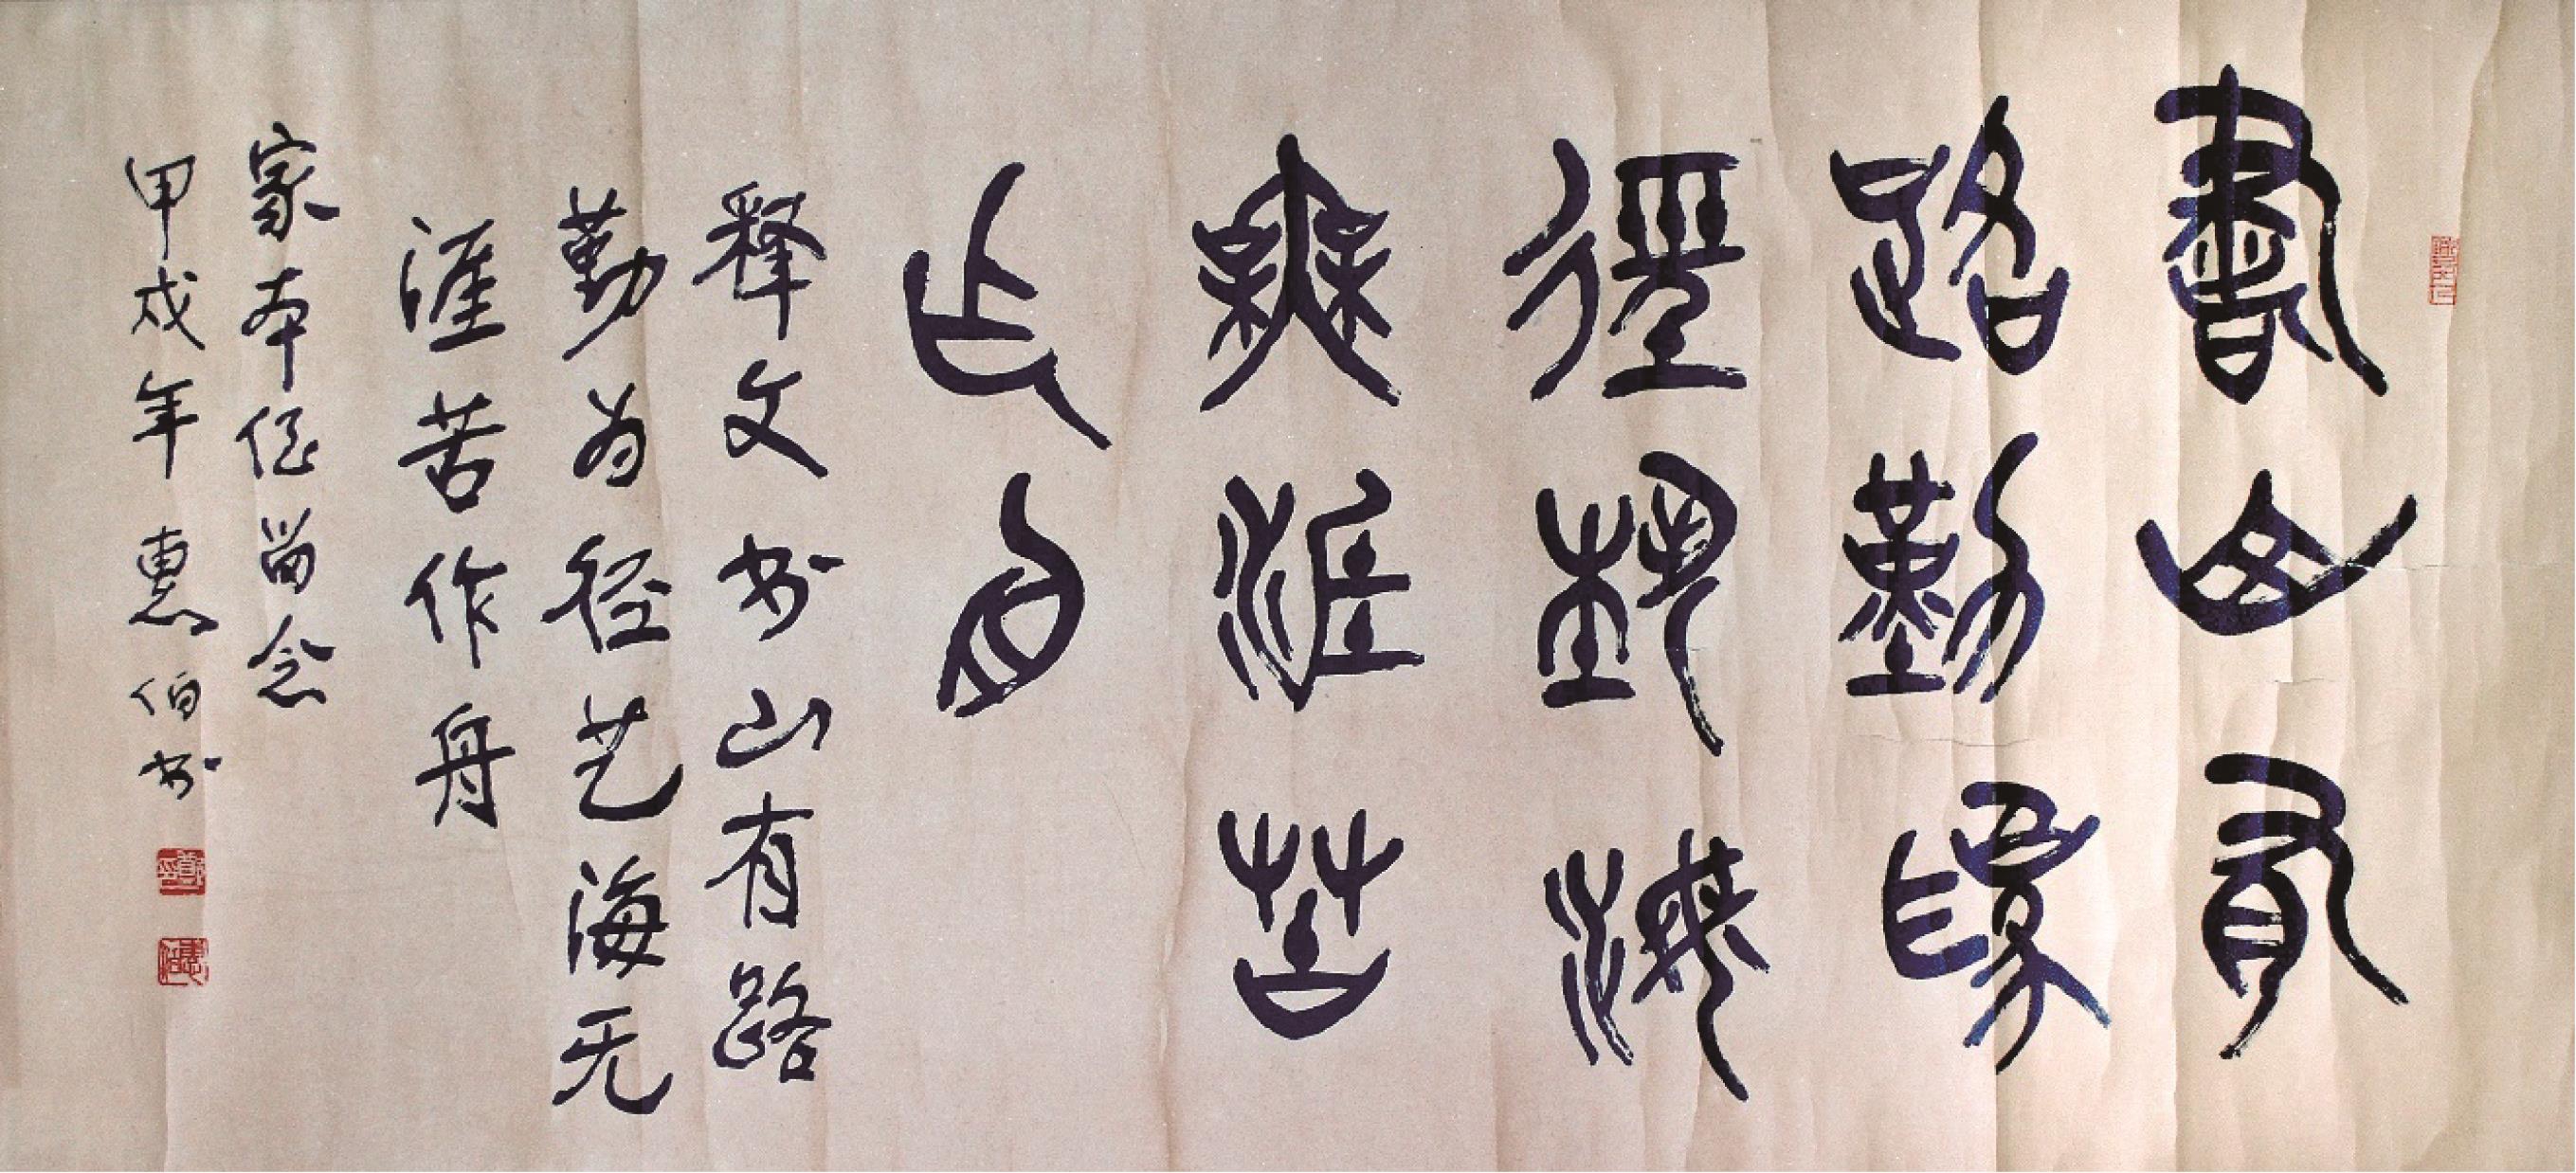 書山有
路勤為
徑藝海
無涯苦
作舟
释文书山有路
勤为径艺海无
涯苦作舟
家本侄留念
甲戌年惠伯书